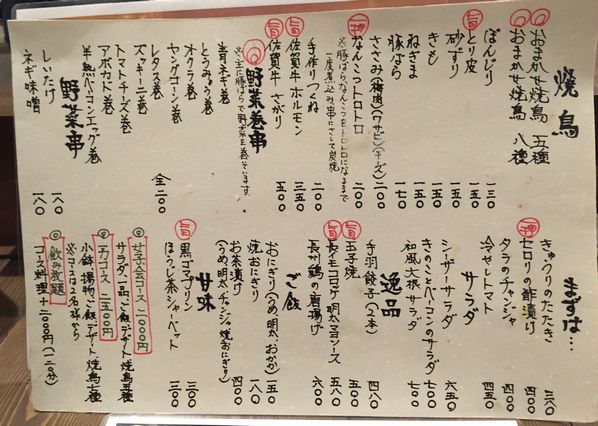 焼鳥
おまかせ焼鳥 五種
おまかせ焼鳥 八種
ぼんじり 一三〇
旨 とり皮 一五〇
砂ずり 一五〇
きも 一五〇
ねぎま 一五〇
豚ばら 一七〇
ささみ(梅肉)(ワサビ)(チーズ) 二〇〇
一押 なんこつトロトロ 二〇〇
※豚ばらなんこつをトロトロになるまで
一度煮込み串にさして炭焼
手作りつくね 二〇〇
旨 佐賀牛ホルモン 三五〇
旨 佐賀牛さがり 五〇〇
野菜巻串
※主に豚ばらで野菜を巻ています。
青ネギ巻
とうみょう巻
オクラ巻
ヤングコーン巻
レタス巻 全二〇〇
ズッキーニ巻
トマトチーズ巻
アボカド巻
半熟ベーコンエッグ巻
野菜串
しいたけ 一八〇
ネギ味噌 一八〇
まずは…
きゅうりのたたき 三八〇
一押 セロリの酢漬け 四〇〇
タラのチャンジャ 五〇〇
冷やしトマト 四五〇
サラダ
シーザーサラダ 六五〇
きのことベーコンのサラダ 七〇〇
和風大根サラダ 七〇〇
逸品
手羽餃子(二本) 四八〇
旨 玉子焼 五〇〇
旨 長イモコロッケ明太マヨソース 五八〇
長州鶏の唐揚げ 六〇〇
ご飯
おにぎり(うめ、明太、おかか) 一五〇
焼おにぎり 一八〇
お茶漬け 四〇〇
(うめ、明太、チャンジャ、焼おにぎり)
甘味
旨 黒ゴマプリン 三〇〇
ほうじ茶シャーベット 三〇〇
◎女子会コース 二〇〇〇円
サラダ 一品 ご飯 デザート 焼鳥五種
◎一力コース 二五〇〇円
小鉢 揚物 ご飯 デザート 焼鳥七種
※コースは2名様から
◎飲み放題
コース料理+二〇〇〇円(一二〇分)